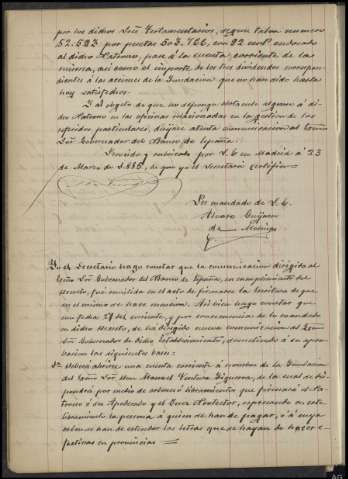 por los dichos Sres Testamentarios, segun talon numero
52.523 por pesetas 503.766, con 92 cents endosado
al dicho Patrono, pase á la cuenta corriente de la
misma, así como el importe de los dividendos correspon-
dientes á las acciones de la Fundacion que no han sido hasta
hoy satisfechos.
Y al objeto de que no se ponga obstáculo alguno á di-
cho Patrono en las oficinas relacionadas en la gestion de los
referidos particulares, dirijase atenta comunicacion al Excmo
Sor Gobernador del Banco de España.
Proveido y rubricado por S. E. en Madrid á 23
de Marzo de 1885, de que yo el Secretario certifico=
Por mandado de S. E.
Alvaro
de
Yo el Secretario hago constar que la comunicacion dirigida al
Excmo Sor Gobernador del Banco de España, en cumplimiento del
decreto, fué remitida en el acto de firmarse la escritura de que
en el mismo se hace mencion. Así bien hago constar que
con fecha 27 del corriente, y por consecuencia de lo mandado
en dicho decreto, se ha dirigido nueva comunicacion al Excmo
Sor Gobernador de dicho Establecimiento, sometiendo á su apro-
bacion las siguientes bases:
1ª Deberá abrirse una cuenta corriente á nombre de la Fundacion
del Excmo Sor Don Manuel Ventura Figueroa, de la cual se dis-
pondrá por medio de talones ó libramientos que firmará el Pa-
trono ó su Apoderado y el Juez Protector, expresando en este
libramiento la persona á quien se han de pagar, ó á cuya
orden se han de extender las letras que se hayan de hacer e-
fectivas en provincias =
AG